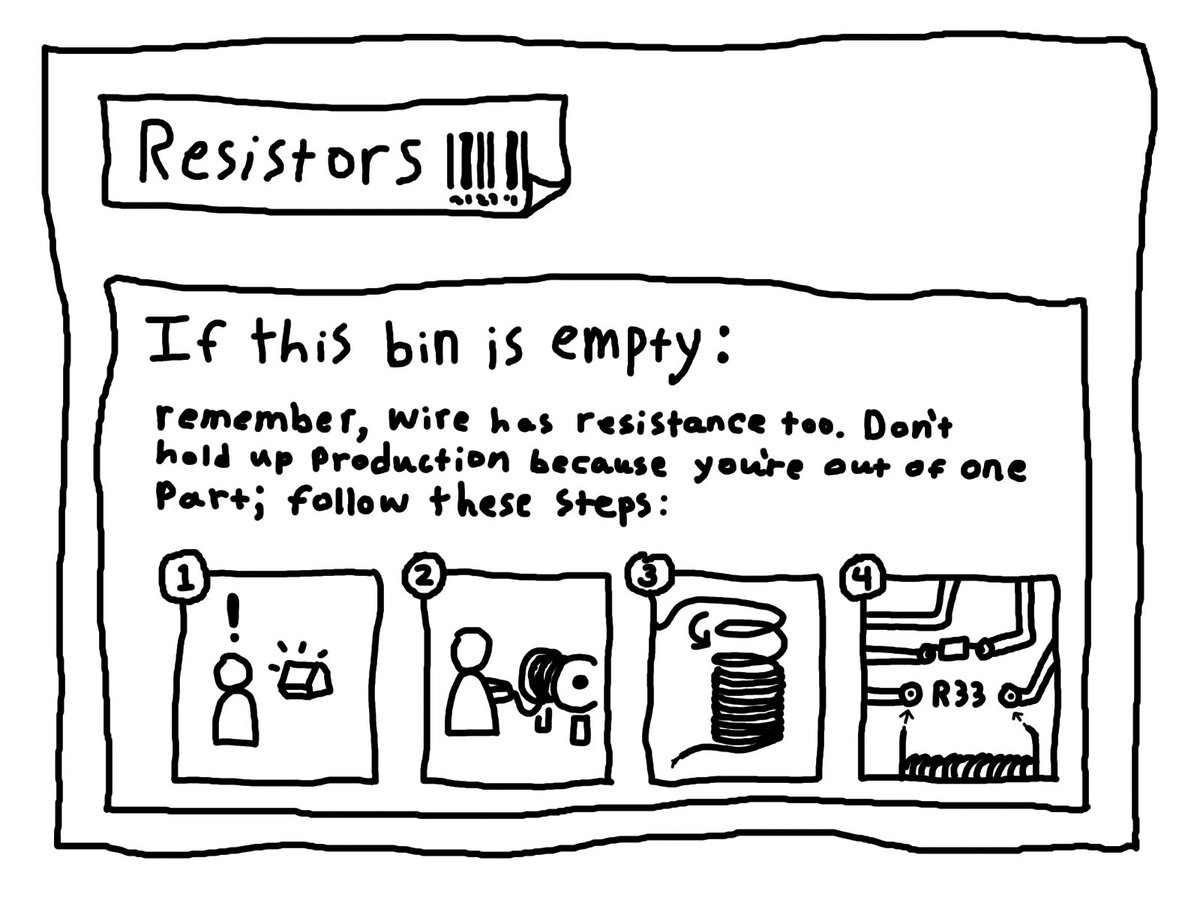 Resistors
If this bin is empty:
remember, wire has resistance too. Don't
hold up production because you're out of one
part; follow these steps:
1
!
2
3
4
R33